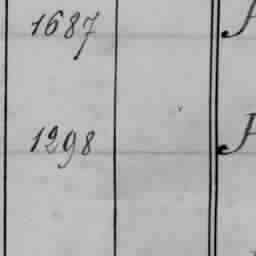 1687
1298